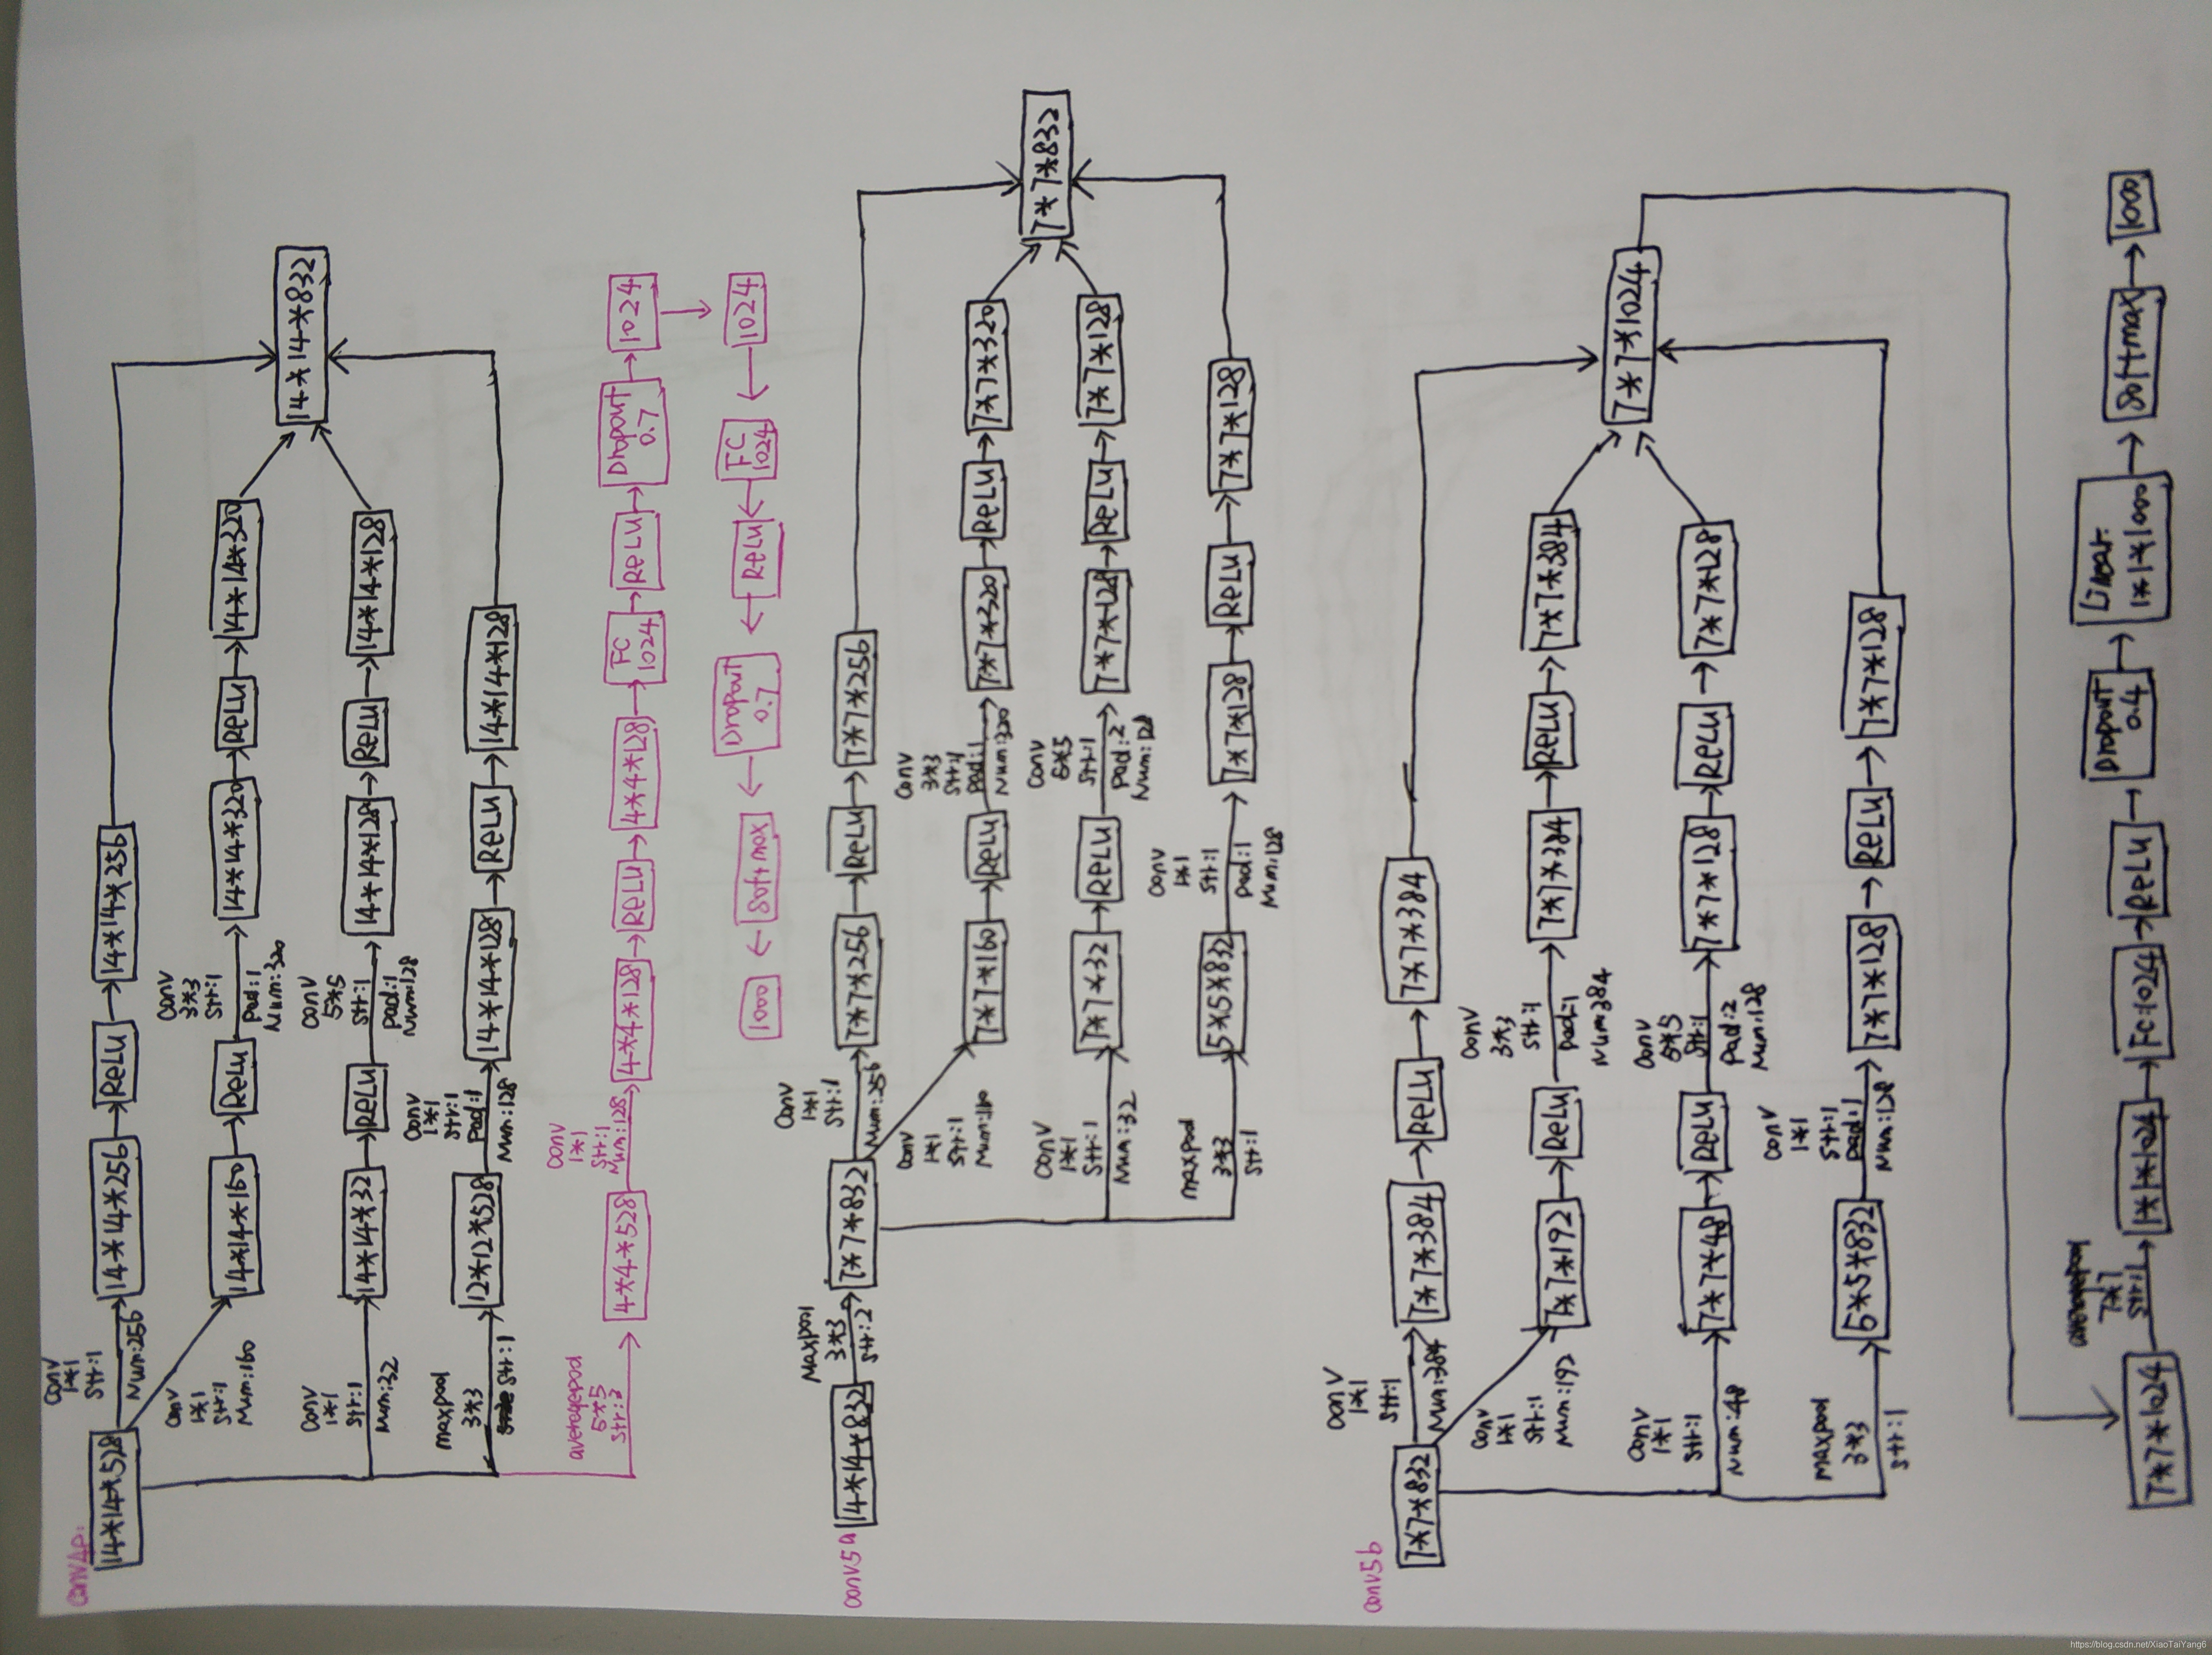 conv4e:
14*14*528
conv
1*1
str:1
Num:256
14*14*256
ReLU
14*14*256
conv
1*1
str:1
Num:160
14*14*160
ReLU
conv
3*3
str:1
pad:1
Num:320
14*14*320
ReLU
14*14*320
conv
1*1
str:1
Num:32
14*14*32
ReLU
conv
5*5
str:1
pad:1
Num:128
14*14*128
ReLU
14*14*128
maxpool
3*3
str:1
12*12*528
conv
1*1
str:1
pad:1
Num:128
14*14*128
ReLU
14*14*128
14*14*832
averagepool
5*5
str:3
4*4*528
conv
1*1
str:1
Num:128
4*4*128
ReLU
4*4*128
FC
1024
ReLU
Dropout
0.7
1024
1024
FC
1024
ReLU
Dropout
0.7
Softmax
1000
conv5a
14*14*832
Maxpool
3*3
str:2
7*7*832
conv
1*1
str:1
Num:256
7*7*256
ReLU
7*7*256
conv
1*1
str:1
Num:160
7*7*160
ReLU
conv
3*3
str:1
pad:1
Num:320
7*7*320
ReLU
7*7*320
conv
1*1
str:1
Num:32
7*7*32
ReLU
conv
5*5
str:1
pad:2
Num:128
7*7*128
ReLU
7*7*128
maxpool
3*3
str:1
5*5*832
conv
1*1
str:1
pad:1
Num:128
7*7*128
ReLU
7*7*128
7*7*832
conv5b
7*7*832
conv
1*1
str:1
Num:384
7*7*384
ReLU
7*7*384
conv
1*1
str:1
Num:192
7*7*192
ReLU
conv
3*3
str:1
pad:1
Num:384
7*7*384
ReLU
7*7*384
conv
1*1
str:1
Num:48
7*7*48
ReLU
conv
5*5
str:1
pad:2
Num:128
7*7*128
ReLU
7*7*128
maxpool
3*3
str:1
5*5*832
conv
1*1
str:1
pad:1
Num:128
7*7*128
ReLU
7*7*128
7*7*1024
7*7*1024
averagepool
7*7
str:1
1*1*1024
FC:1024
ReLU
Dropout
0.4
Linear:
1*1*1000
softmax
1000
https://blog.csdn.net/XiaoTaiYang6